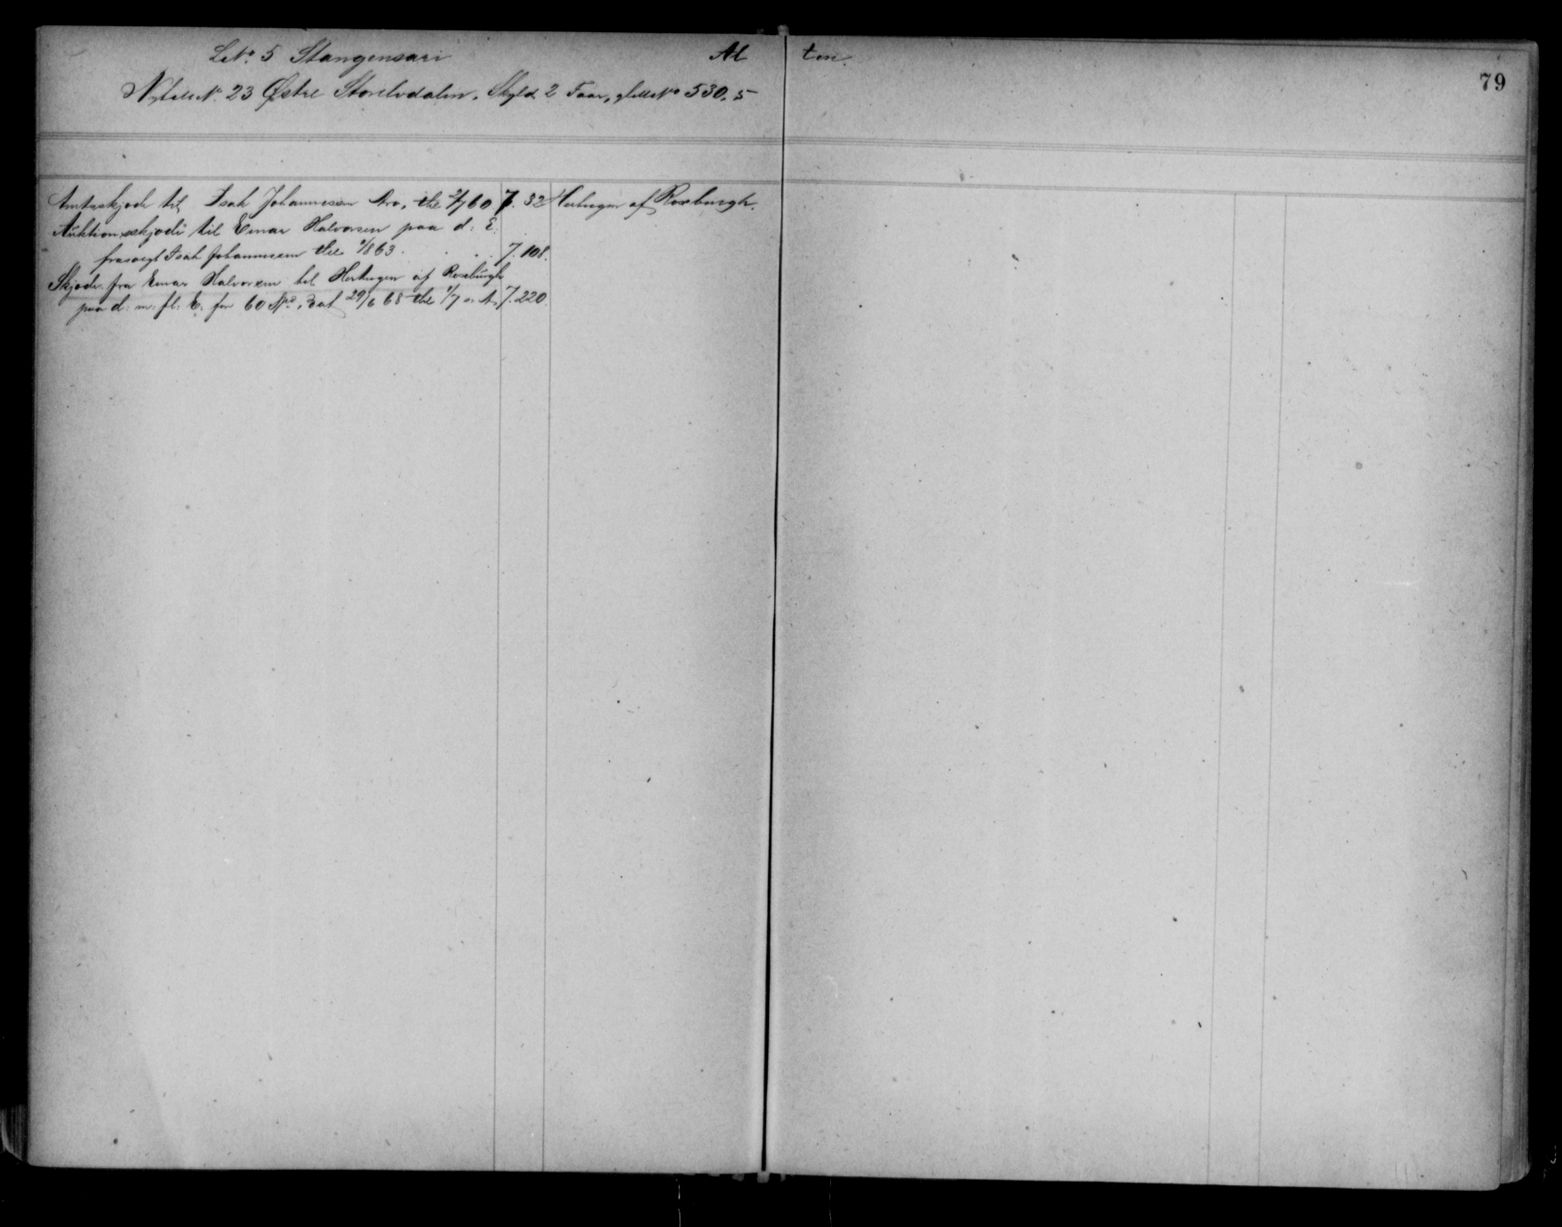 L. No. 5 Stangensari Al ten.
79
Nyt No. 23 Østre Storelvdalen. Skyld 2 Faar, gl No 530. 5
Amtsskjøde til Isak Johannessen Bro, thl. 2/7 60 7. 32 Hertugen af Roxburgh.
Auktionsskjøde til Einar Halvorsen paa d: E:
frasolgt Isak Johannessen thl. 1/8 63 . . . . 7. 108.
Skjøde fra Einar Halvorsen til Hertugen af Roxburgh
paa d: m: fl: E. for 60 , dat 29/6 68 thl. 1/7 s. A. 7. 220.